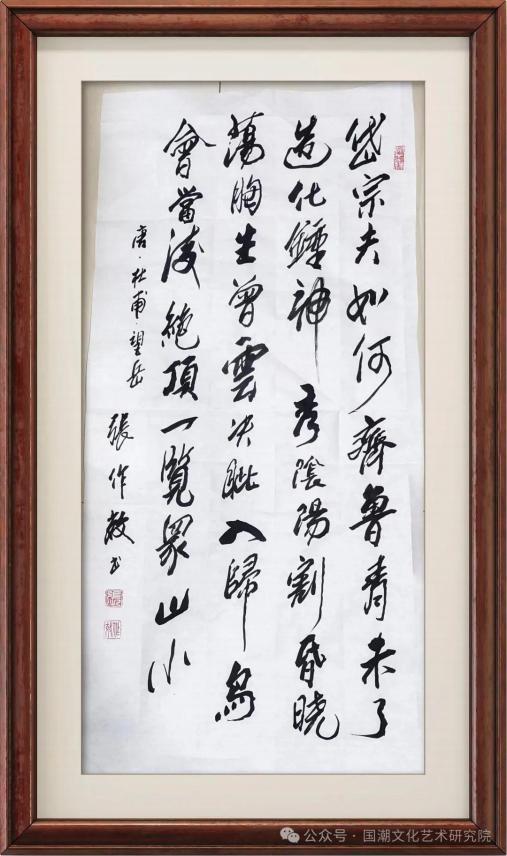 岱宗夫如何齊魯青未了
造化鍾神秀陰陽割昏曉
蕩胸生曾雲決眦入歸鳥
會當凌絕頂一覽眾山小
唐·杜甫·望岳
張作书
公众号·国潮文化艺术研究院